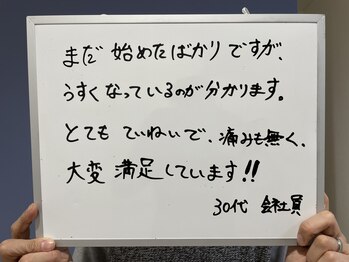 まだ 始めたばかりですが、
うすくなっているのが分かります。
とても ていねいで、痛みも無く、
大変 満足しています!!
30代 会社員